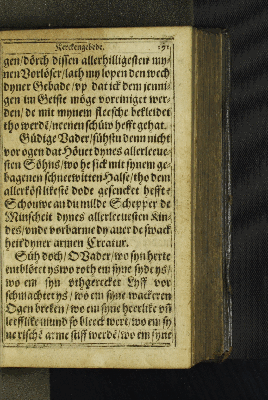 Kerckengebede. 191
gen/dörch dissen allerhilligesten my-
nen Vorlöser/lath my lopen den wech
dyner Gebade/vp dat ick dem jenni-
gen im Geiste möge voreiniget wer-
den/de mit mynem fleesche bekleidet
tho werdē/neenen schüw hefft gehat.
Güdige Vader/sühstu denn nicht
vor ogen dat Höuet dynes allerleeue-
sten Söhns/wo he sick mit synem ge-
bagenen schneewitten Halse/tho dem
allerköstlikestē dode gesencket hefft?
Schouwe an du milde Schepper de
Minscheit dynes allerleeuesten Kin-
des/vnde vorbarme dy auer de swack
heit dyner armen Creatur.
Süh doch/O Vader/wo syn herte
emblötet ys/wo roth em syne syde ys/
wo em syn vthgerecket Lyff vor
schmachtet ys/wo em syne wackeren
Ogen breken/wo em syne heerlike vñ
leefflike mund so bleeck wert/wo em sy
ne rischē arme stiff werdē/wo em syne